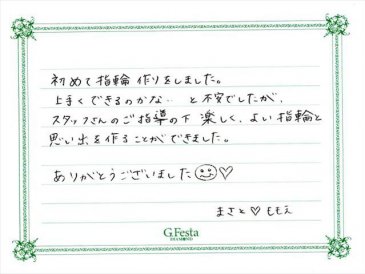 初めて指輪作りをしました。
上手くできるのかな… と不安でしたが、
スタッフさんのご指導の下 楽しく、よい指輪と
思い出を作ることができました。
ありがとうございました☺♡
まさと♡ももえ
G.Festa
DIAMOND